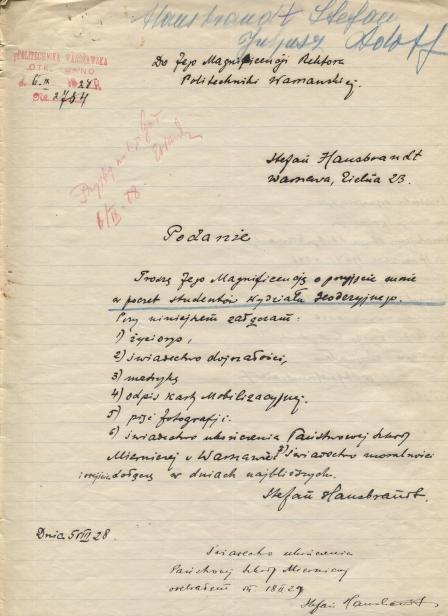 Hausbrandt Stefan
Juljusz Adolf
POLITECHNIKA WARSZAWSKA
OTRZYMANO
d. 6.IX 1928 r.
Nr 2784
Do Jego Magnificencji Rektora
Politechniki Warszawskiej.
6/IX 28
Stefan Hausbrandt
Warszawa, Zielna 23.
Podanie
Proszę Jego Magnificencję o przyjęcie mnie
w poczet studentów Wydziału Geodezyjnego.
Przy niniejszem załączam:
1) życiorys,
2) świadectwo dojrzałości,
3) metrykę
4) odpis karty Mobilizacyjnej.
5) pięć fotografji.
6) świadectwo ukończenia Państwowej Szkoły
Mierniczej w Warszawie. Świadectwo moralności
dołączę w dniach najbliższych.
Stefan Hausbrandt.
Dnia 5 VIII 28
Świadectwo ukończenia
Państwowej Szkoły Mierniczej
odebrałem 18 II 29
Stefan Hausbrandt